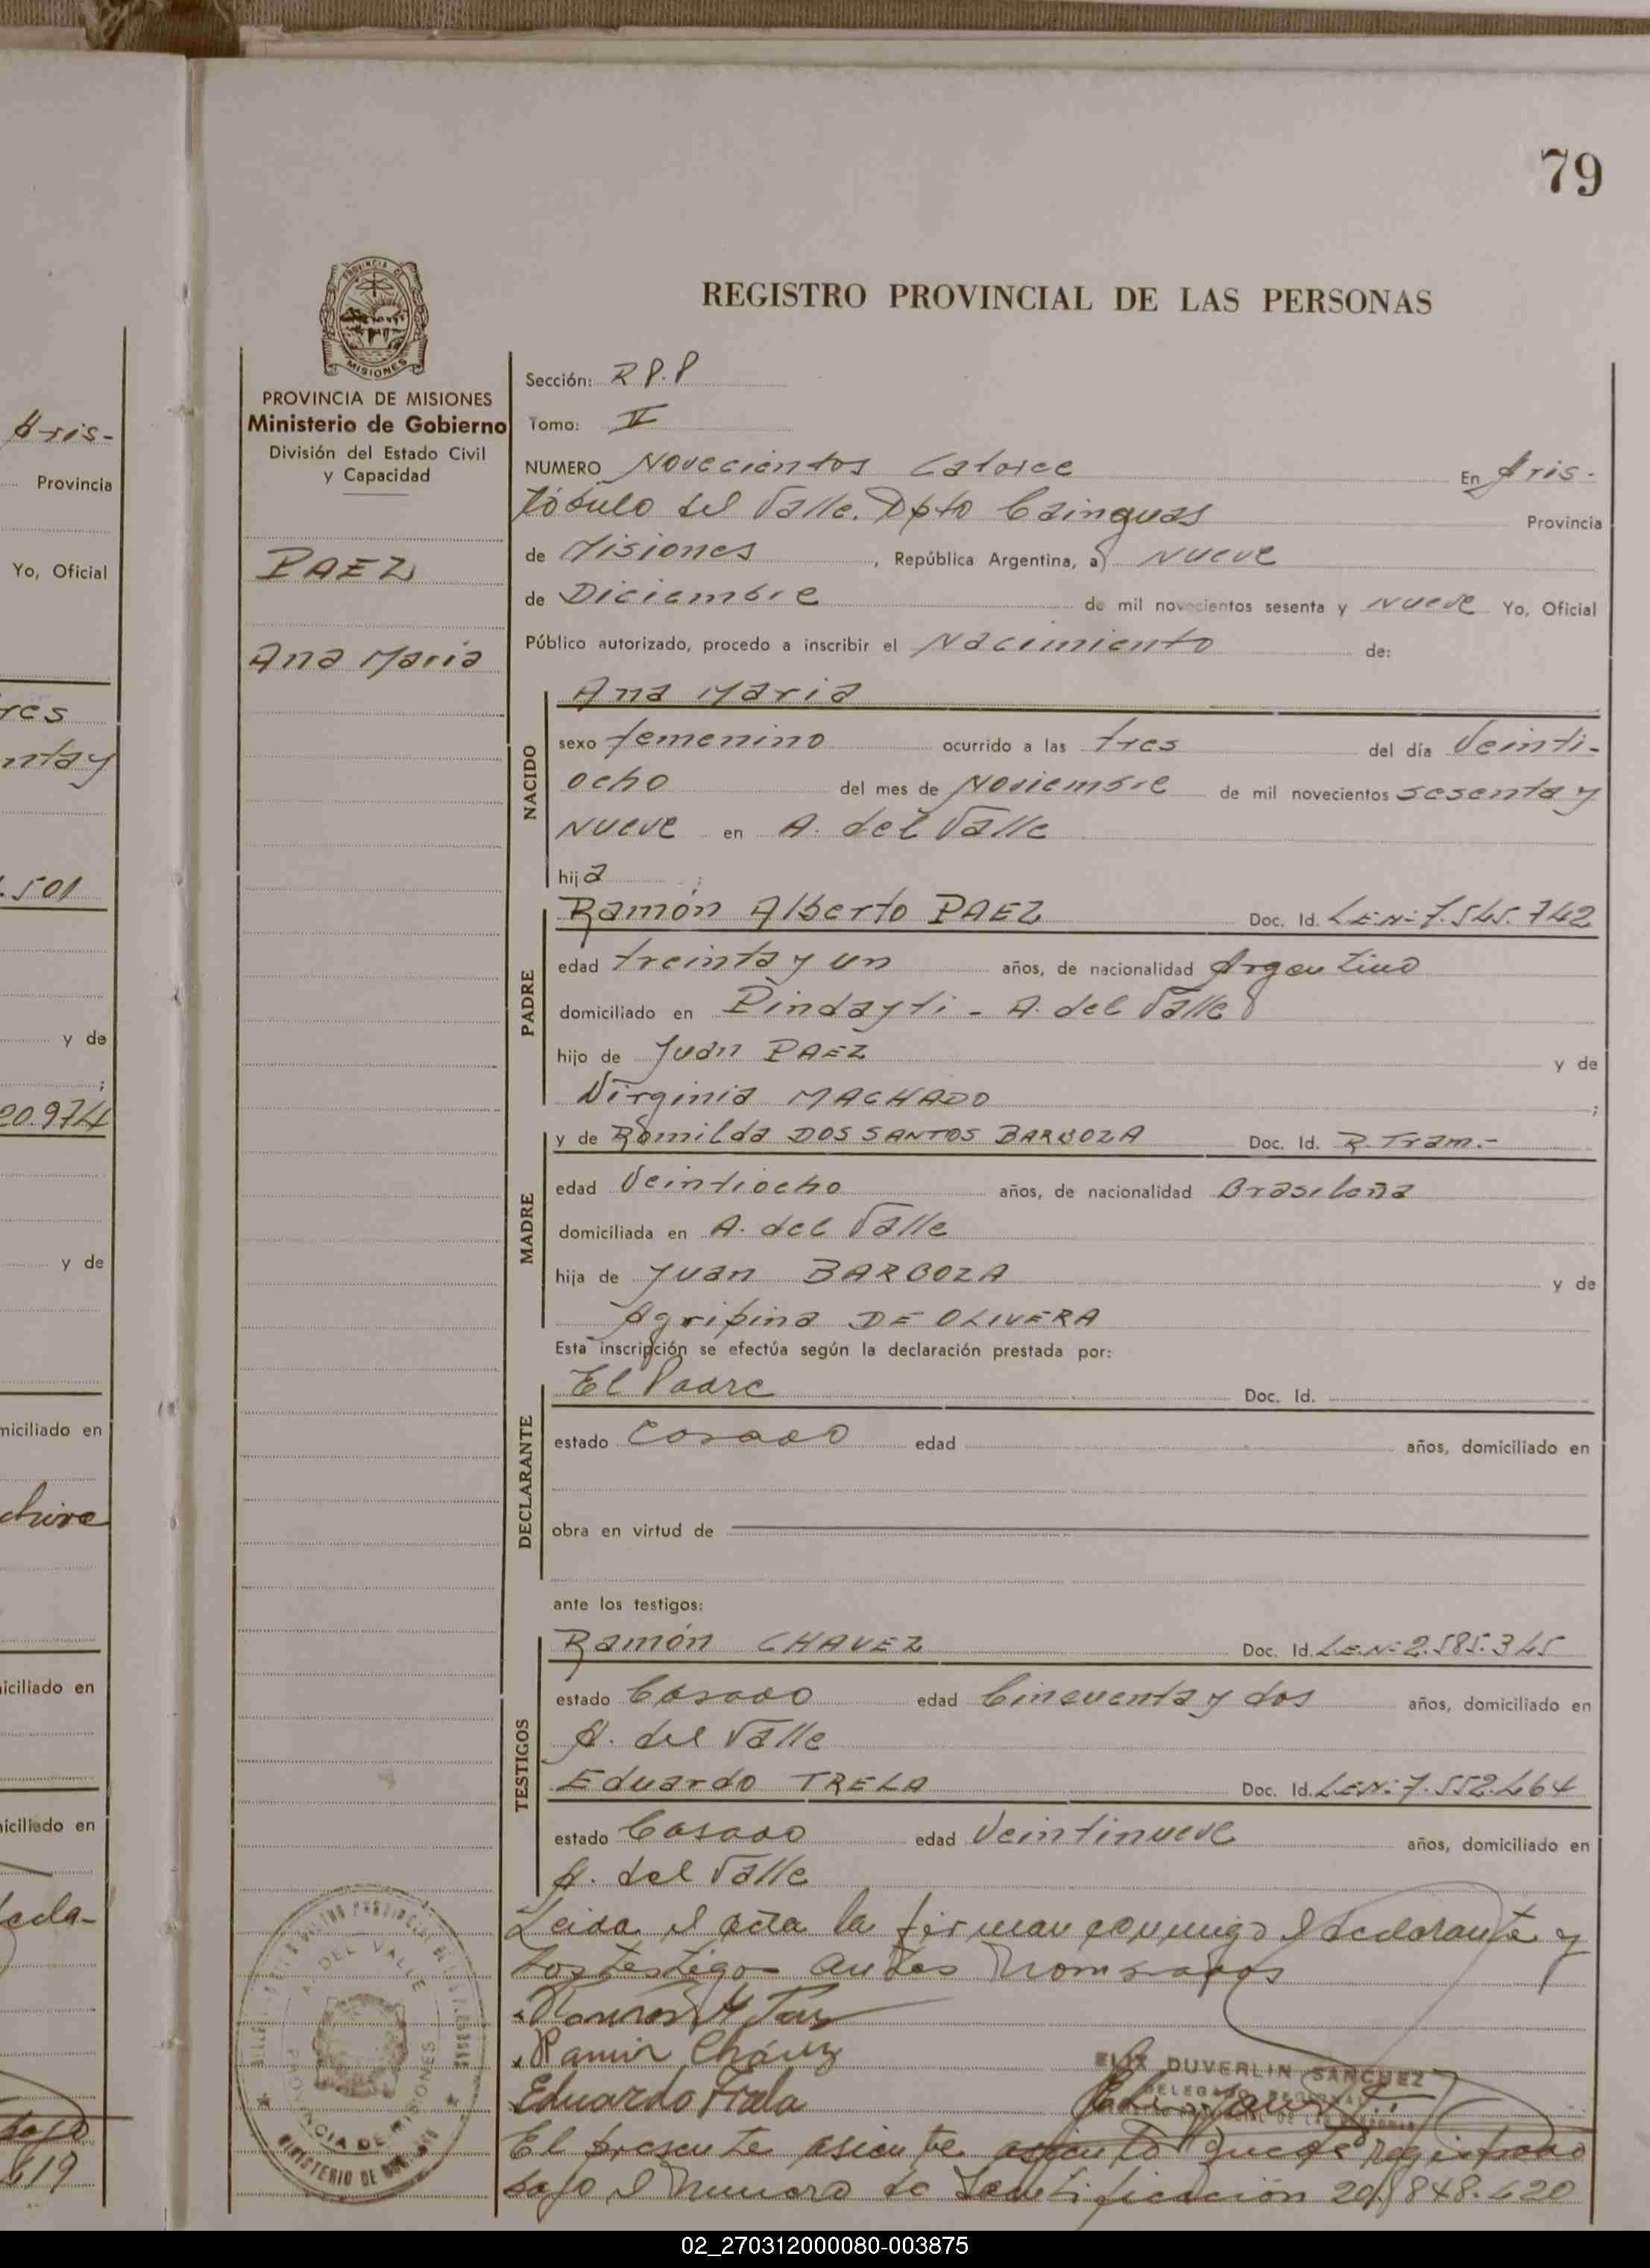 79
REGISTRO PROVINCIAL DE LAS PERSONAS
PROVINCIA DE MISIONES
Ministerio de Gobierno
División del Estado Civil
y Capacidad
PAEZ
Ana Maria
Sección: R P.P
Tomo: II
NUMERO Novecientos Catorce En Aris-
tóbulo del Valle. Dpto Cainguas Provincia
de Misiones, República Argentina, a) Nueve
de Diciembre de mil novecientos sesenta y nueve Yo, Oficial
Público autorizado, procedo a inscribir el Nacimiento de:
NACIDO
Ana Maria
sexo femenino ocurrido a las tres del día Veinti-
ocho del mes de Noviembre de mil novecientos sesenta y
nueve en A. del Valle
hija
PADRE
Ramón Alberto PAEZ Doc. Id. L.E.N: 7.545.742
edad treinta y un años, de nacionalidad Argentino
domiciliado en Pindayti - A. del Valle
hijo de Juan PAEZ y de
Virginia MACHADO ;
MADRE
y de Romilda DOS SANTOS BARBOZA Doc. Id. R. Tram.-
edad Veintiocho años, de nacionalidad Brasileña
domiciliada en A. del Valle
hija de Juan BARBOZA y de
Agripina DE OLIVERA
Esta inscripción se efectúa según la declaración prestada por:
DECLARANTE
El Padre Doc. Id.
estado Casado edad años, domiciliado en
obra en virtud de
ante los testigos:
TESTIGOS
Ramón CHAVEZ Doc. Id. L.E.N: 2.585.345
estado Casado edad Cincuenta y dos años, domiciliado en
A. del Valle
Eduardo TRELA Doc. Id. L.E.N: 7.552.464
estado Casado edad Veintinueve años, domiciliado en
A. del Valle
Leida el acta la firman conmigo el declarante y
los testigos antes nombrados
Ramón Chávez
Eduardo Trela
DUVERLIN SANCHEZ
DELEGADO
A. DEL VALLE
PROVINCIA DE MISIONES
MINISTERIO DE
El presente asiente asiento queda registrado
bajo el Numero de Identificación 20.848.620
Aris-
Provincia
Yo, Oficial
res
nta y
.501
y de
;
20.974
y de
miciliado en
miciliado en
miciliado en
decla-
bajo
619
02_270312000080-003875